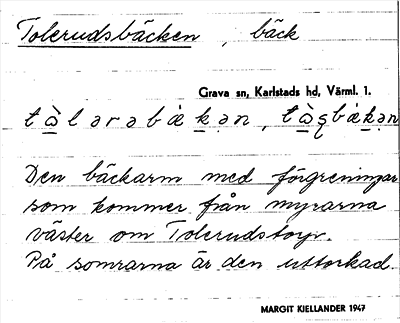 Tolerudsbäcken, bäck
Grava sn, Karlstads hd, Värml. 1.
Den bäckarm med förgreningar
som kommer från myrarna
väster om Tolerudstorp.
På somrarna är den uttorkad.
MARGIT KJELLANDER 1947